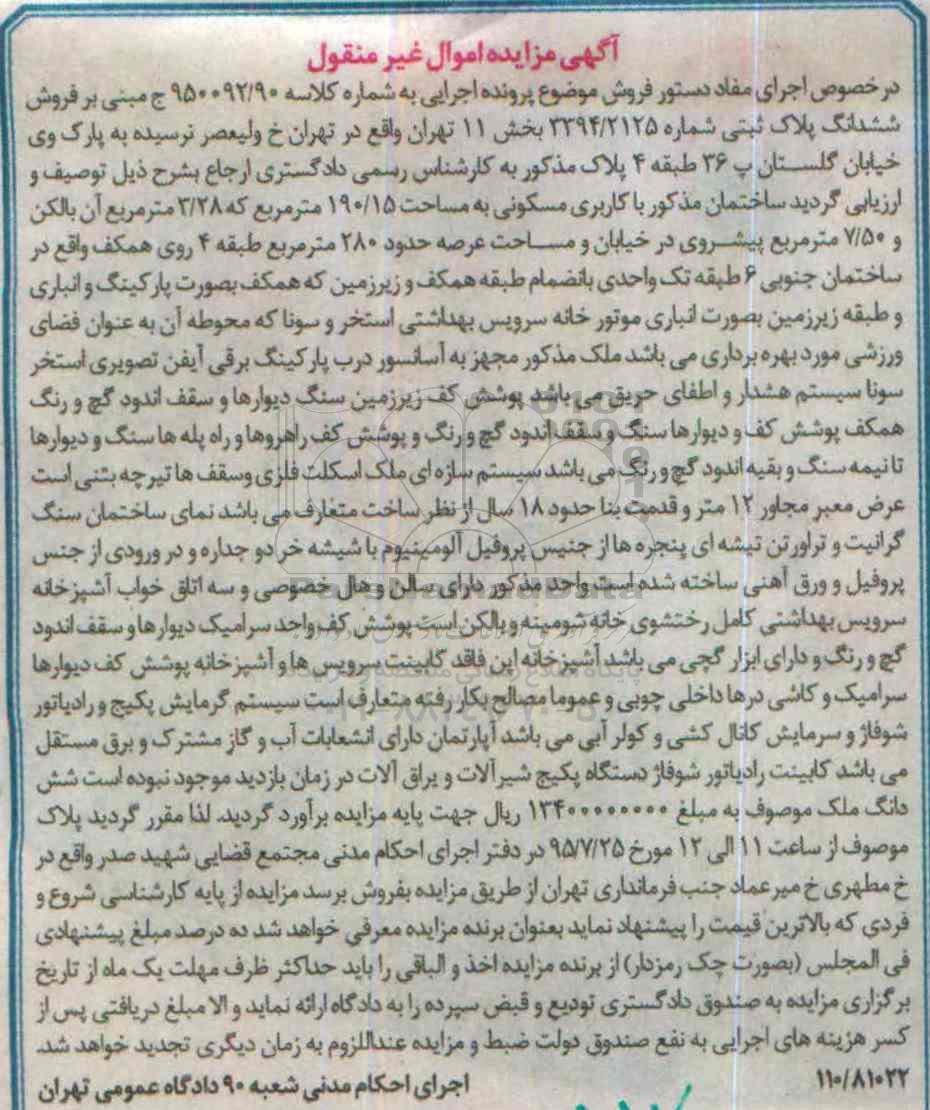 آگهی مزایده اموال غیر منقول
در خصوص اجرای مفاد دستور فروش موضوع پرونده اجرایی به شماره کلاسه ۹۵۰۰۹۲/۹۰ ج مبنی بر فروش
ششدانگ پلاک ثبتی شماره ۳۳۹۴/۲۱۲۵ بخش ۱۱ تهران واقع در تهران خ ولیعصر نرسیده به پارک وی
خیابان گلستان پ ۳۶ طبقه ۴ پلاک مذکور به کارشناس رسمی دادگستری ارجاع بشرح ذیل توصیف و
ارزیابی گردید ساختمان مذکور با کاربری مسکونی به مساحت ۱۹۰/۱۵ مترمربع که ۳/۲۸ مترمربع آن بالکن
و ۷/۵۰ مترمربع پیشروی در خیابان و مساحت عرصه حدود ۲۸۰ مترمربع طبقه ۴ روی همکف واقع در
ساختمان جنوبی ۶ طبقه تک واحدی بانضمام طبقه همکف و زیرزمین که همکف بصورت پارکینگ و انباری
و طبقه زیرزمین بصورت انباری موتور خانه سرویس بهداشتی استخر و سونا که محوطه آن به عنوان فضای
ورزشی مورد بهره برداری می باشد ملک مذکور مجهز به آسانسور درب پارکینگ برقی آیفن تصویری استخر
سونا سیستم هشدار و اطفای حریق می باشد پوشش کف زیرزمین سنگ دیوارها و سقف اندود گچ و رنگ
همکف پوشش کف و دیوارها سنگ و سقف اندود گچ و رنگ و پوشش کف راهروها و راه پله ها سنگ و دیوارها
تا نیمه سنگ و بقیه اندود گچ و رنگ می باشد سیستم سازه ای ملک اسکلت فلزی وسقف ها تیرچه بتنی است
عرض معبر مجاور ۱۲ متر و قدمت بنا حدود ۱۸ سال از نظر ساخت متعارف می باشد نمای ساختمان سنگ
گرانیت و تراورتن تیشه ای پنجره ها از جنیس پروفیل آلومینیوم با شیشه خر دو جداره و در ورودی از جنس
پروفیل و ورق آهنی ساخته شده است واحد مذکور دارای سالن و هال خصوصی و سه اتاق خواب آشپزخانه
سرویس بهداشتی کامل رختشوی خانه شومینه و بالکن است پوشش کف واحد سرامیک دیوارها و سقف اندود
گچ و رنگ و دارای ابزار گچی می باشد آشپزخانه این فاقد کابینت سرویس ها و آشپزخانه پوشش کف دیوارها
سرامیک و کاشی درها داخلی چوبی و عموما مصالح بکار رفته متعارف است سیستم گرمایش پکیج و رادیاتور
شوفاژ و سرمایش کانال کشی و کولر آبی می باشد آپارتمان دارای انشعابات آب و گاز مشترک و برق مستقل
می باشد کابینت رادیاتور شوفاژ دستگاه پکیج شیرآلات و یراق آلات در زمان بازدید موجود نبوده است شش
دانگ ملک موصوف به مبلغ ۱۳۴۰۰۰۰۰۰۰۰ ریال جهت پایه مزایده برآورد گردید. لذا مقرر گردید پلاک
موصوف از ساعت ۱۱ الی ۱۲ مورخ ۹۵/۷/۲۵ در دفتر اجرای احکام مدنی مجتمع قضایی شهید صدر واقع در
خ مطهری خ میرعماد جنب فرمانداری تهران از طریق مزایده بفروش برسد مزایده از پایه کارشناسی شروع و
فردی که بالاترین قیمت را پیشنهاد نماید بعنوان برنده مزایده معرفی خواهد شد ده درصد مبلغ پیشنهادی
فی المجلس (بصورت چک رمزدار) از برنده مزایده اخذ و الباقی را باید حداکثر ظرف مهلت یک ماه از تاریخ
برگزاری مزایده به صندوق دادگستری تودیع و قبض سپرده را به دادگاه ارائه نماید و الا مبلغ دریافتی پس از
کسر هزینه های اجرایی به نفع صندوق دولت ضبط و مزایده عنداللزوم به زمان دیگری تجدید خواهد شد.
۱۱۰/۸۱۰۲۲ اجرای احکام مدنی شعبه ۹۰ دادگاه عمومی تهران